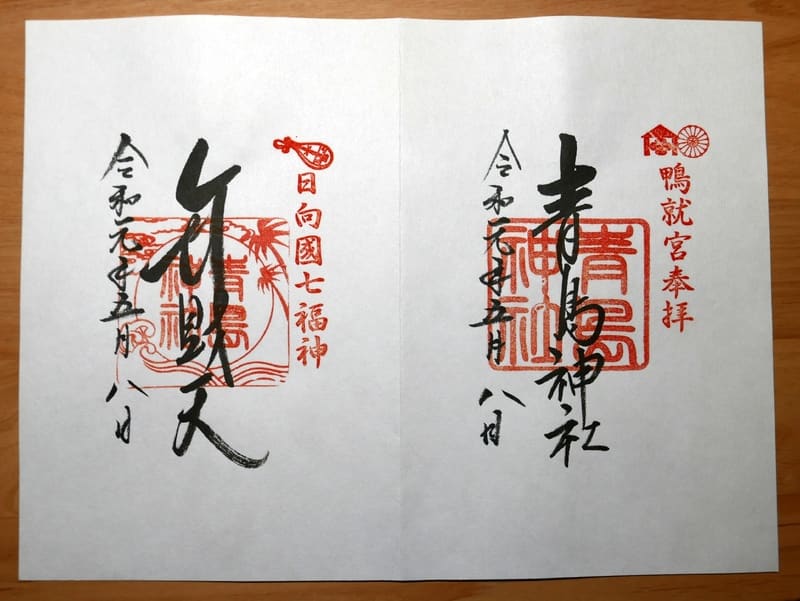 鴨就宮奉拝
青島神社
青島
神社
令和元年五月八日
日向國七福神
弁財天
青島
神社
令和元年五月八日